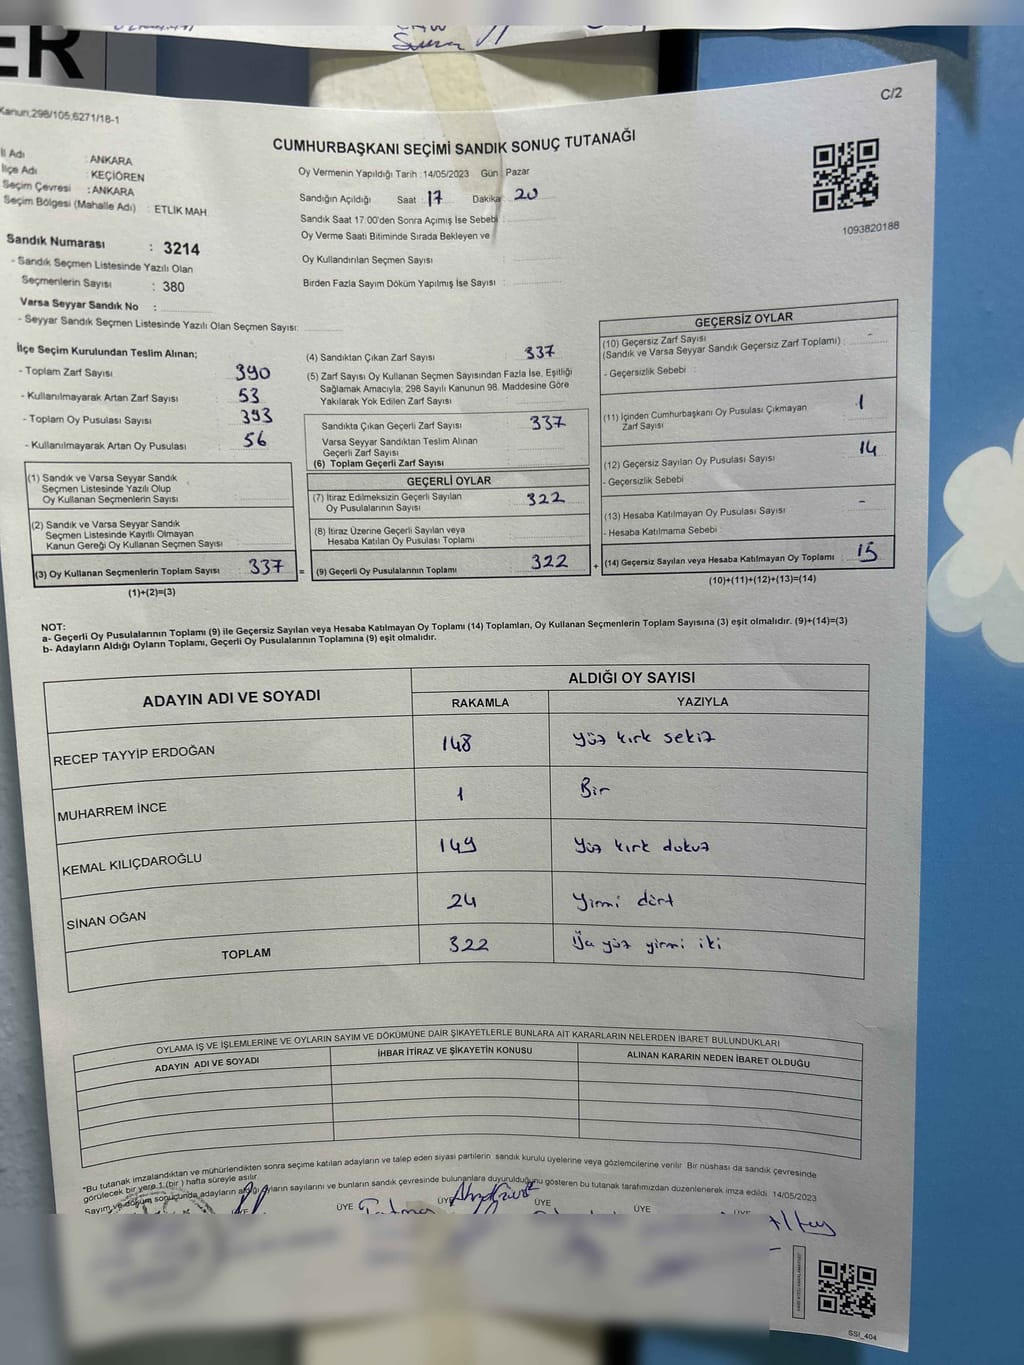 ER
Kanun,298/105,6271/18-1
C/2
CUMHURBAŞKANI SEÇİMİ SANDIK SONUÇ TUTANAĞI
İl Adı : ANKARA
İlçe Adı : KEÇİÖREN
Seçim Çevresi : ANKARA
Seçim Bölgesi (Mahalle Adı) : ETLİK MAH.
Oy Vermenin Yapıldığı Tarih : 14/05/2023 Gün : Pazar
Sandığın Açıldığı Saat : 17 Dakika : 20
Sandık Saat 17.00'den Sonra Açımış İse Sebebi :
Oy Verme Saati Bitiminde Sırada Bekleyen ve
Oy Kullandırılan Seçmen Sayısı :
Birden Fazla Sayım Döküm Yapılmış İse Sayısı :
1093820188
Sandık Numarası : 3214
- Sandık Seçmen Listesinde Yazılı Olan
Seçmenlerin Sayısı : 380
Varsa Seyyar Sandık No :
- Seyyar Sandık Seçmen Listesinde Yazılı Olan Seçmen Sayısı:
İlçe Seçim Kurulundan Teslim Alınan;
- Toplam Zarf Sayısı 390
- Kullanılmayarak Artan Zarf Sayısı 53
- Toplam Oy Pusulası Sayısı 393
- Kullanılmayarak Artan Oy Pusulası 56
(1) Sandık ve Varsa Seyyar Sandık
Seçmen Listesinde Yazılı Olup
Oy Kullanan Seçmenlerin Sayısı
(2) Sandık ve Varsa Seyyar Sandık
Seçmen Listesinde Kayıtlı Olmayan
Kanun Gereği Oy Kullanan Seçmen Sayısı
(3) Oy Kullanan Seçmenlerin Toplam Sayısı 337 =
(1)+(2)=(3)
(4) Sandıktan Çıkan Zarf Sayısı 337
(5) Zarf Sayısı Oy Kullanan Seçmen Sayısından Fazla İse, Eşitliği
Sağlamak Amacıyla; 298 Sayılı Kanunun 98. Maddesine Göre
Yakılarak Yok Edilen Zarf Sayısı
Sandıkta Çıkan Geçerli Zarf Sayısı 337
Varsa Seyyar Sandıktan Teslim Alınan
Geçerli Zarf Sayısı
(6) Toplam Geçerli Zarf Sayısı
GEÇERLİ OYLAR
(7) İtiraz Edilmeksizin Geçerli Sayılan
Oy Pusulalarının Sayısı 322
(8) İtiraz Üzerine Geçerli Sayılan veya
Hesaba Katılan Oy Pusulası Toplamı
(9) Geçerli Oy Pusulalarının Toplamı 322 +
GEÇERSİZ OYLAR
(10) Geçersiz Zarf Sayısı -
(Sandık ve Varsa Seyyar Sandık Geçersiz Zarf Toplamı) :
- Geçersizlik Sebebi :
(11) İçinden Cumhurbaşkanı Oy Pusulası Çıkmayan 1
Zarf Sayısı
(12) Geçersiz Sayılan Oy Pusulası Sayısı 14
- Geçersizlik Sebebi
(13) Hesaba Katılmayan Oy Pusulası Sayısı -
- Hesaba Katılmama Sebebi :
(14) Geçersiz Sayılan veya Hesaba Katılmayan Oy Toplamı 15
(10)+(11)+(12)+(13)=(14)
NOT:
a- Geçerli Oy Pusulalarının Toplamı (9) ile Geçersiz Sayılan veya Hesaba Katılmayan Oy Toplamı (14) Toplamları, Oy Kullanan Seçmenlerin Toplam Sayısına (3) eşit olmalıdır. (9)+(14)=(3)
b- Adayların Aldığı Oyların Toplamı, Geçerli Oy Pusulalarının Toplamına (9) eşit olmalıdır.
ADAYIN ADI VE SOYADI
ALDIĞI OY SAYISI
RAKAMLA YAZIYLA
RECEP TAYYİP ERDOĞAN 148 yüz kırk sekiz
MUHARREM İNCE 1 Bir
KEMAL KILIÇDAROĞLU 149 yüz kırk dokuz
SİNAN OĞAN 24 yirmi dört
TOPLAM 322 yüz yirmi iki
OYLAMA İŞ VE İŞLEMLERİNE VE OYLARIN SAYIM VE DÖKÜMÜNE DAİR ŞİKAYETLERLE BUNLARA AİT KARARLARIN NELERDEN İBARET BULUNDUKLARI
ADAYIN ADI VE SOYADI İHBAR İTİRAZ VE ŞİKAYETİN KONUSU ALINAN KARARIN NEDEN İBARET OLDUĞU
*Bu tutanak imzalandıktan ve mühürlendikten sonra seçime katılan adayların ve talep eden siyasi partilerin sandık kurulu üyelerine veya gözlemcilerine verilir. Bir nüshası da sandık çevresinde
görülecek bir yere 1 (bir) hafta süreyle asılır.
Sayım ve döküm sonuçunda adayların aldığı oyların sayılarını ve bunların sandık çevresinde bulunanlara duyurulduğunu gösteren bu tutanak tarafımızdan düzenlenerek imza edildi. 14/05/2023
ÜYE ÜYE ÜYE ÜYE ÜYE ÜYE
Fatma
SSI_404